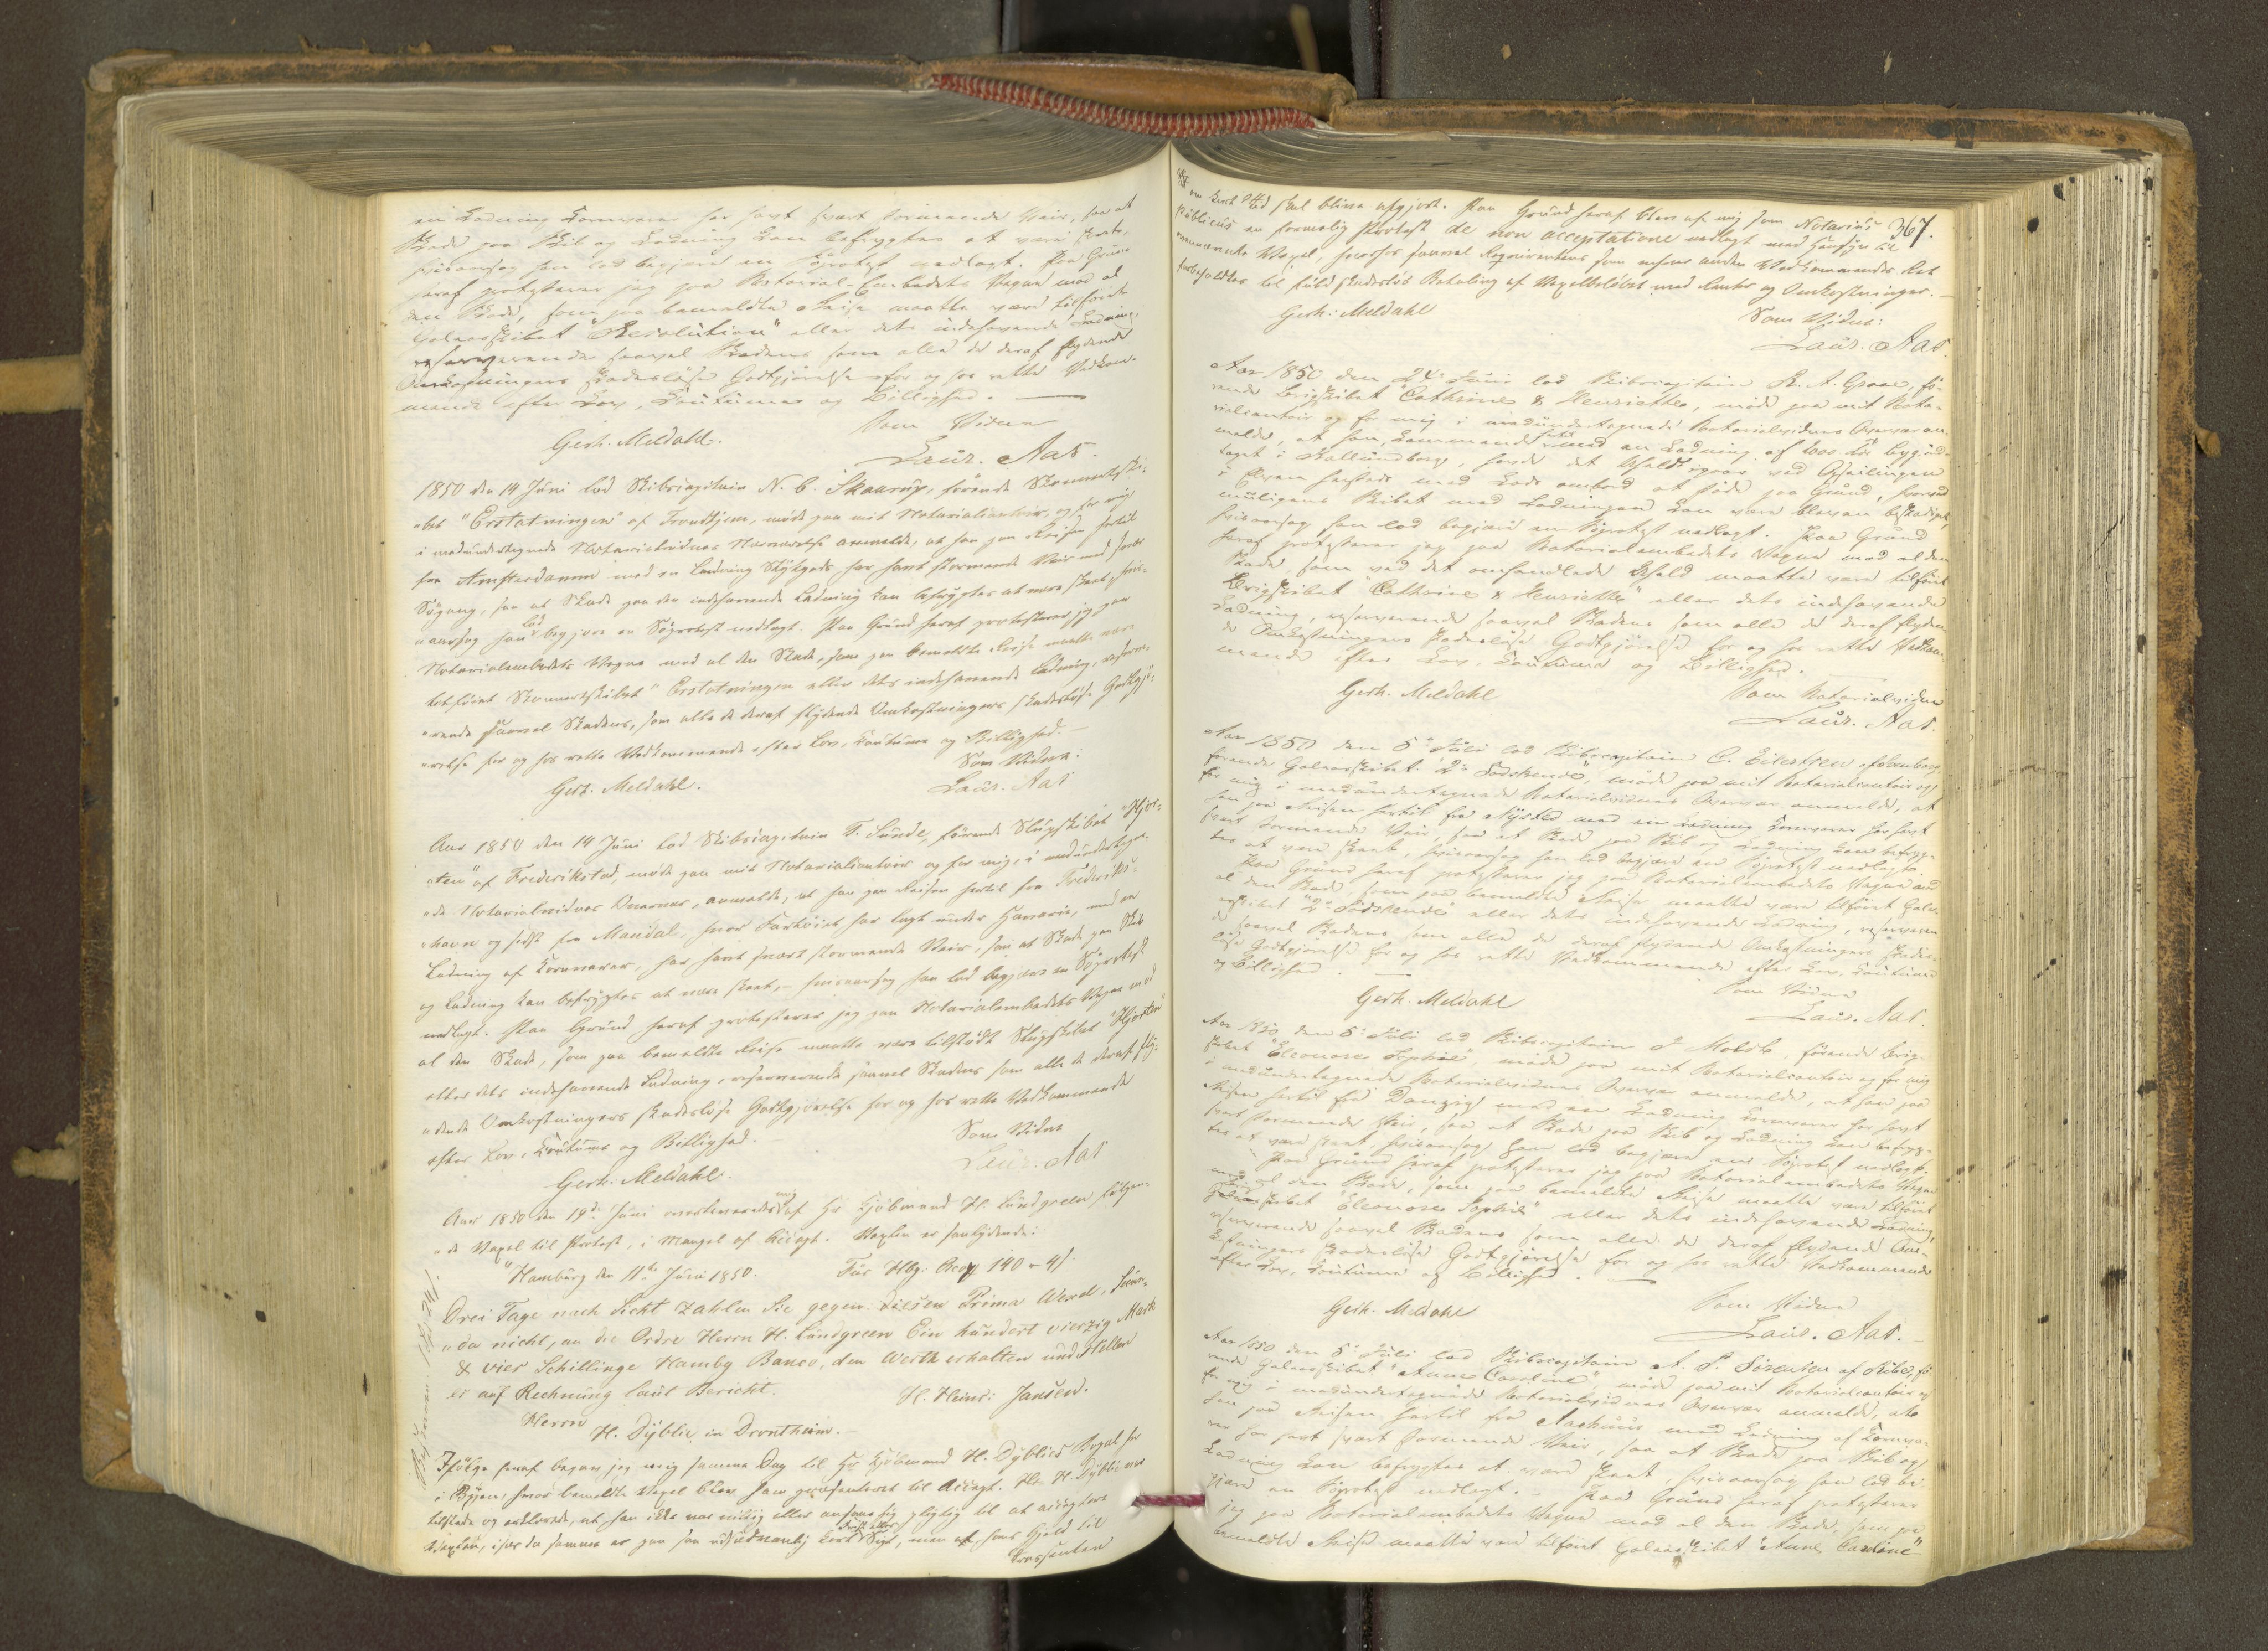 en Ladning Kornvarer har havt svært stormende Veir, saa at
Skade paa Skib og Ladning kan befrygtes at være skeet,
hvisaarsag han lod begjære en Søprotest nedlagt. Paa Grund
heraf protesterer jeg paa Notarial-Embedets Vegne mod al
den Skade, som paa bemeldte Reise maatte være tilføiet
Galeasskibet "Resolution" eller dets indehavende Ladning,
reserverende saavel Skadens som alle de deraf flydende
Omkostningers skadesløse Godtgjørelse for og hos rette Vedkom-
mende efter Lov, Coutume og Billighed.
Som Vidne
Gerh. Meldahl.
Laur. Aas.
1850 den 14 Juni lod Skibscapitain N. C. Skaarup, førende Skonnertski-
bet "Erstatningen" af Trondhjem, møde paa mit Notarialcontoir, og for mig
i medundertegnede Notarialvidnes Nærværelse anmelde, at han paa Reisen hertil
fra Amsterdamm med en Ladning Stykgods har havt stormende Veir med svær
Søgang, saa at Skade paa den indehavende Ladning kan befrygtes at være skeet, hvis-
aarsag han lod begjære en Søprotest nedlagt. Paa Grund heraf protesterer jeg paa
Notarialembedets Vegne mod al den Skade, som paa bemeldte Reise maatte være
tilføiet Skonnertskibet "Erstatningen eller dets indehavende Ladning, reserve-
rende saavel Skadens, som alle de deraf flydende Omkostningers skadesløse Godtgjø-
relse for og hos rette Vedkommende efter Lov, Coutume og Billighed.
Som Vidne:
Gerh. Meldahl.
Laur. Aas
Aar 1850 den 14 Juni lod Skibscapitain T. Sunde, førende Slupskibet "Hjor-
ten" af Frederikstad, møde paa mit Notarialcontoir og for mig, i medunderteg-
ede Notarialvidnes Overvær, anmelde, at han paa Reisen hertil fra Frederiks-
havn og sidst fra Mandal, hvor Fartøiet har lagt under Havarie, med en
Ladning af Kornvarer, har havt svært stormende Veir, saa at Skade paa Skib
og Ladning kan befrygtes at være skeet, - hvisaarsag han lod begjære en Søprotest
nedlagt. Paa Grund heraf protesterer jeg paa Notarialembedets Vegne mod
al den Skade, som paa bemeldte Reise maatte være tilstødt Slupskibet "Hjorten"
eller dets indehavende Ladning, reserverende saavel Skadens som alle de deraf fly-
dende Omkostningers skadesløse Godtgjørelse for og hos rette Vedkommende
efter Lov, Coutume og Billighed.
Som Vidne
Gerh. Meldahl.
Laur. Aas
Aar 1850 den 19de Juni overleveredes mig af Hr Kjøbmand H. Lundgreen følgen-
de Vexel til Protest, i Mangel af Accept. Vexlen er saalydende:
"Hamburg den 11ten Juni 1850. Für Hbg: Bco 140 - 4/.
Drei Tage nach Sicht zahlen Sie gegen diesen Prima Wexel, Secun-
da nicht, an die Ordre Herrn H. Lundgreen Ein hundert vierzig Mark
& vier Schillinge Hambg Banco, den Werth erhalten und stellen
es auf Rechnung laut Bericht.
H. Heinr: Jansen.
Herrn
H. Dyblie in Drontheim.
Ifølge heraf begav jeg mig samme Dag til Hr Kjøbmand H. Dyblies Bopæl her
i Byen, hvor bemeldte Vexel blev ham præsenteret til Accept. Hr. H. Dyblie var
tilstede og erklærede, at han ikke var villig eller ansaae sig pligtig til at acceptere
Vexlen, især da samme er paa saa usædvanlig kort Sigt, men at hans Gjeld til
Trassenten
367.
om kort Tid skal blive afgjort. Paa Grund heraf blev af mig som Notarius
Publicus en formelig Protest de non acceptatione nedlagt med Hensyn til
ommeldte Vexel, hvorhos saavel Reqvirentens som enhver anden Vedkommendes Ret
forbeholdtes til fuld skadesløs Betaling af Vexelbeløbet med Renter og Omkostninger.
Gerh: Meldahl
Som Vidne:
Laur. Aas.
Aar 1850 den 24 Juni lod Skibscapitain A. Graae, fø-
rende Brigskibet "Cathrine & Henriette, møde paa mit Nota-
rialcontoir og for mig i medundertegnede Notarialvidnes Overvær an-
melde, at han, kommende med en Ladning af 600 Tdr Byg ind-
taget i Kallundborg, havde det Uheld igaar ved Opseilingen
i Elven hersteds med Lods ombord at støde paa Grund, hvorved
muligens Skibet med Ladningen kan være bleven beskadiget,
hvisaarsag han lod begjære en Søprotest nedlagt. Paa Grund
heraf protesterer jeg paa Notarialembedets Vegne mod al den
Skade, som ved det omhandlede Uheld maatte være tilføiet
Brigskibet "Cathrine & Henriette" eller dets indehavende
Ladning, reserverende saavel Skadens som alle de deraf flyden-
de Omkostningers skadesløse Godtgjørelse for og hos rette Vedkom-
mende efter Lov, Coutume og Billighed.
Gerh. Meldahl
Som Notarialvidne
Laur. Aas.
Aar 1850 den 5 Juli lod Skibscapitain C. Eilertsen af
førende Galeasskibet "2de Södskende", møde paa mit Notarialcontoir og
for mig i medundertegnede Notarialvidnes Overvær anmelde, at
han paa Reisen hertil fra Nysted med en Ladning Kornvarer har havt
svært stormende Veir, saa at Skade paa Skib og Ladning kan befryg-
tes at være skeet, hvisaarsag han lod begjære en Søprotest nedlagt.
Paa Grund heraf protesterer jeg paa Notarialembedets Vegne mod
al den Skade, som paa bemeldte Reise maatte være tilføiet Galea-
skibet "2de Södskende" eller dets indehavende Ladning, reserveren-
de saavel Skadens som alle de deraf flydende Omkostningers skades-
løse Godtgjørelse for og hos rette Vedkommende efter Lov, Coutume
og Billighed.
Gerh. Meldahl
Som Vidne
Laur. Aas.
Aar 1850 den 5 Juli lod Skibscapitain J Molsb førende Brig-
skibet "Eleonore Sophie", møde paa mit Notarialcontoir og for mig
i medundertegnede Notarialvidnes Overvær anmelde, at han paa
Reisen hertil fra Danzig med en Ladning Kornvarer har havt
svært stormende Veir, saa at Skade paa Skib og Ladning kan befryg-
tes at være skeet, hvisaarsag han lod begjære en Søprotest nedlagt.
Paa Grund heraf protesterer jeg paa Notarialembedets Vegne
mod al den Skade, som paa bemeldte Reise maatte være tilføiet
"Eleonore Sophie" eller dets indehavende Ladning,
reserverende saavel Skadens som alle de deraf flydende Om-
kostningers skadesløse Godtgjørelse for og hos rette Vedkommende
efter Lov, Coutume og Billighed.
Gerh. Meldahl
Som Vidne
Laur. Aas.
Aar 1850 den 5 Juli lod Skibscapitain A. P. Sørensen af Ribe, fø-
rende Galeasskibet "Anne Caroline" møde paa mit Notarialcontoir og
for mig i medundertegnede Notarialvidnes Overvær anmelde, at
han paa Reisen hertil fra Aarhuus med Ladning af Kornva-
rer har havt svært stormende Veir, saa at Skade paa Skib og
Ladning kan befrygtes at være skeet, hvisaarsag han lod be-
gjære en Søprotest nedlagt. - Paa Grund heraf protesterer
jeg paa Notarialembedets Vegne mod al den Skade, som paa
anmeldte Reise maatte være tilføiet Galeasskibet "Anne Caroline"